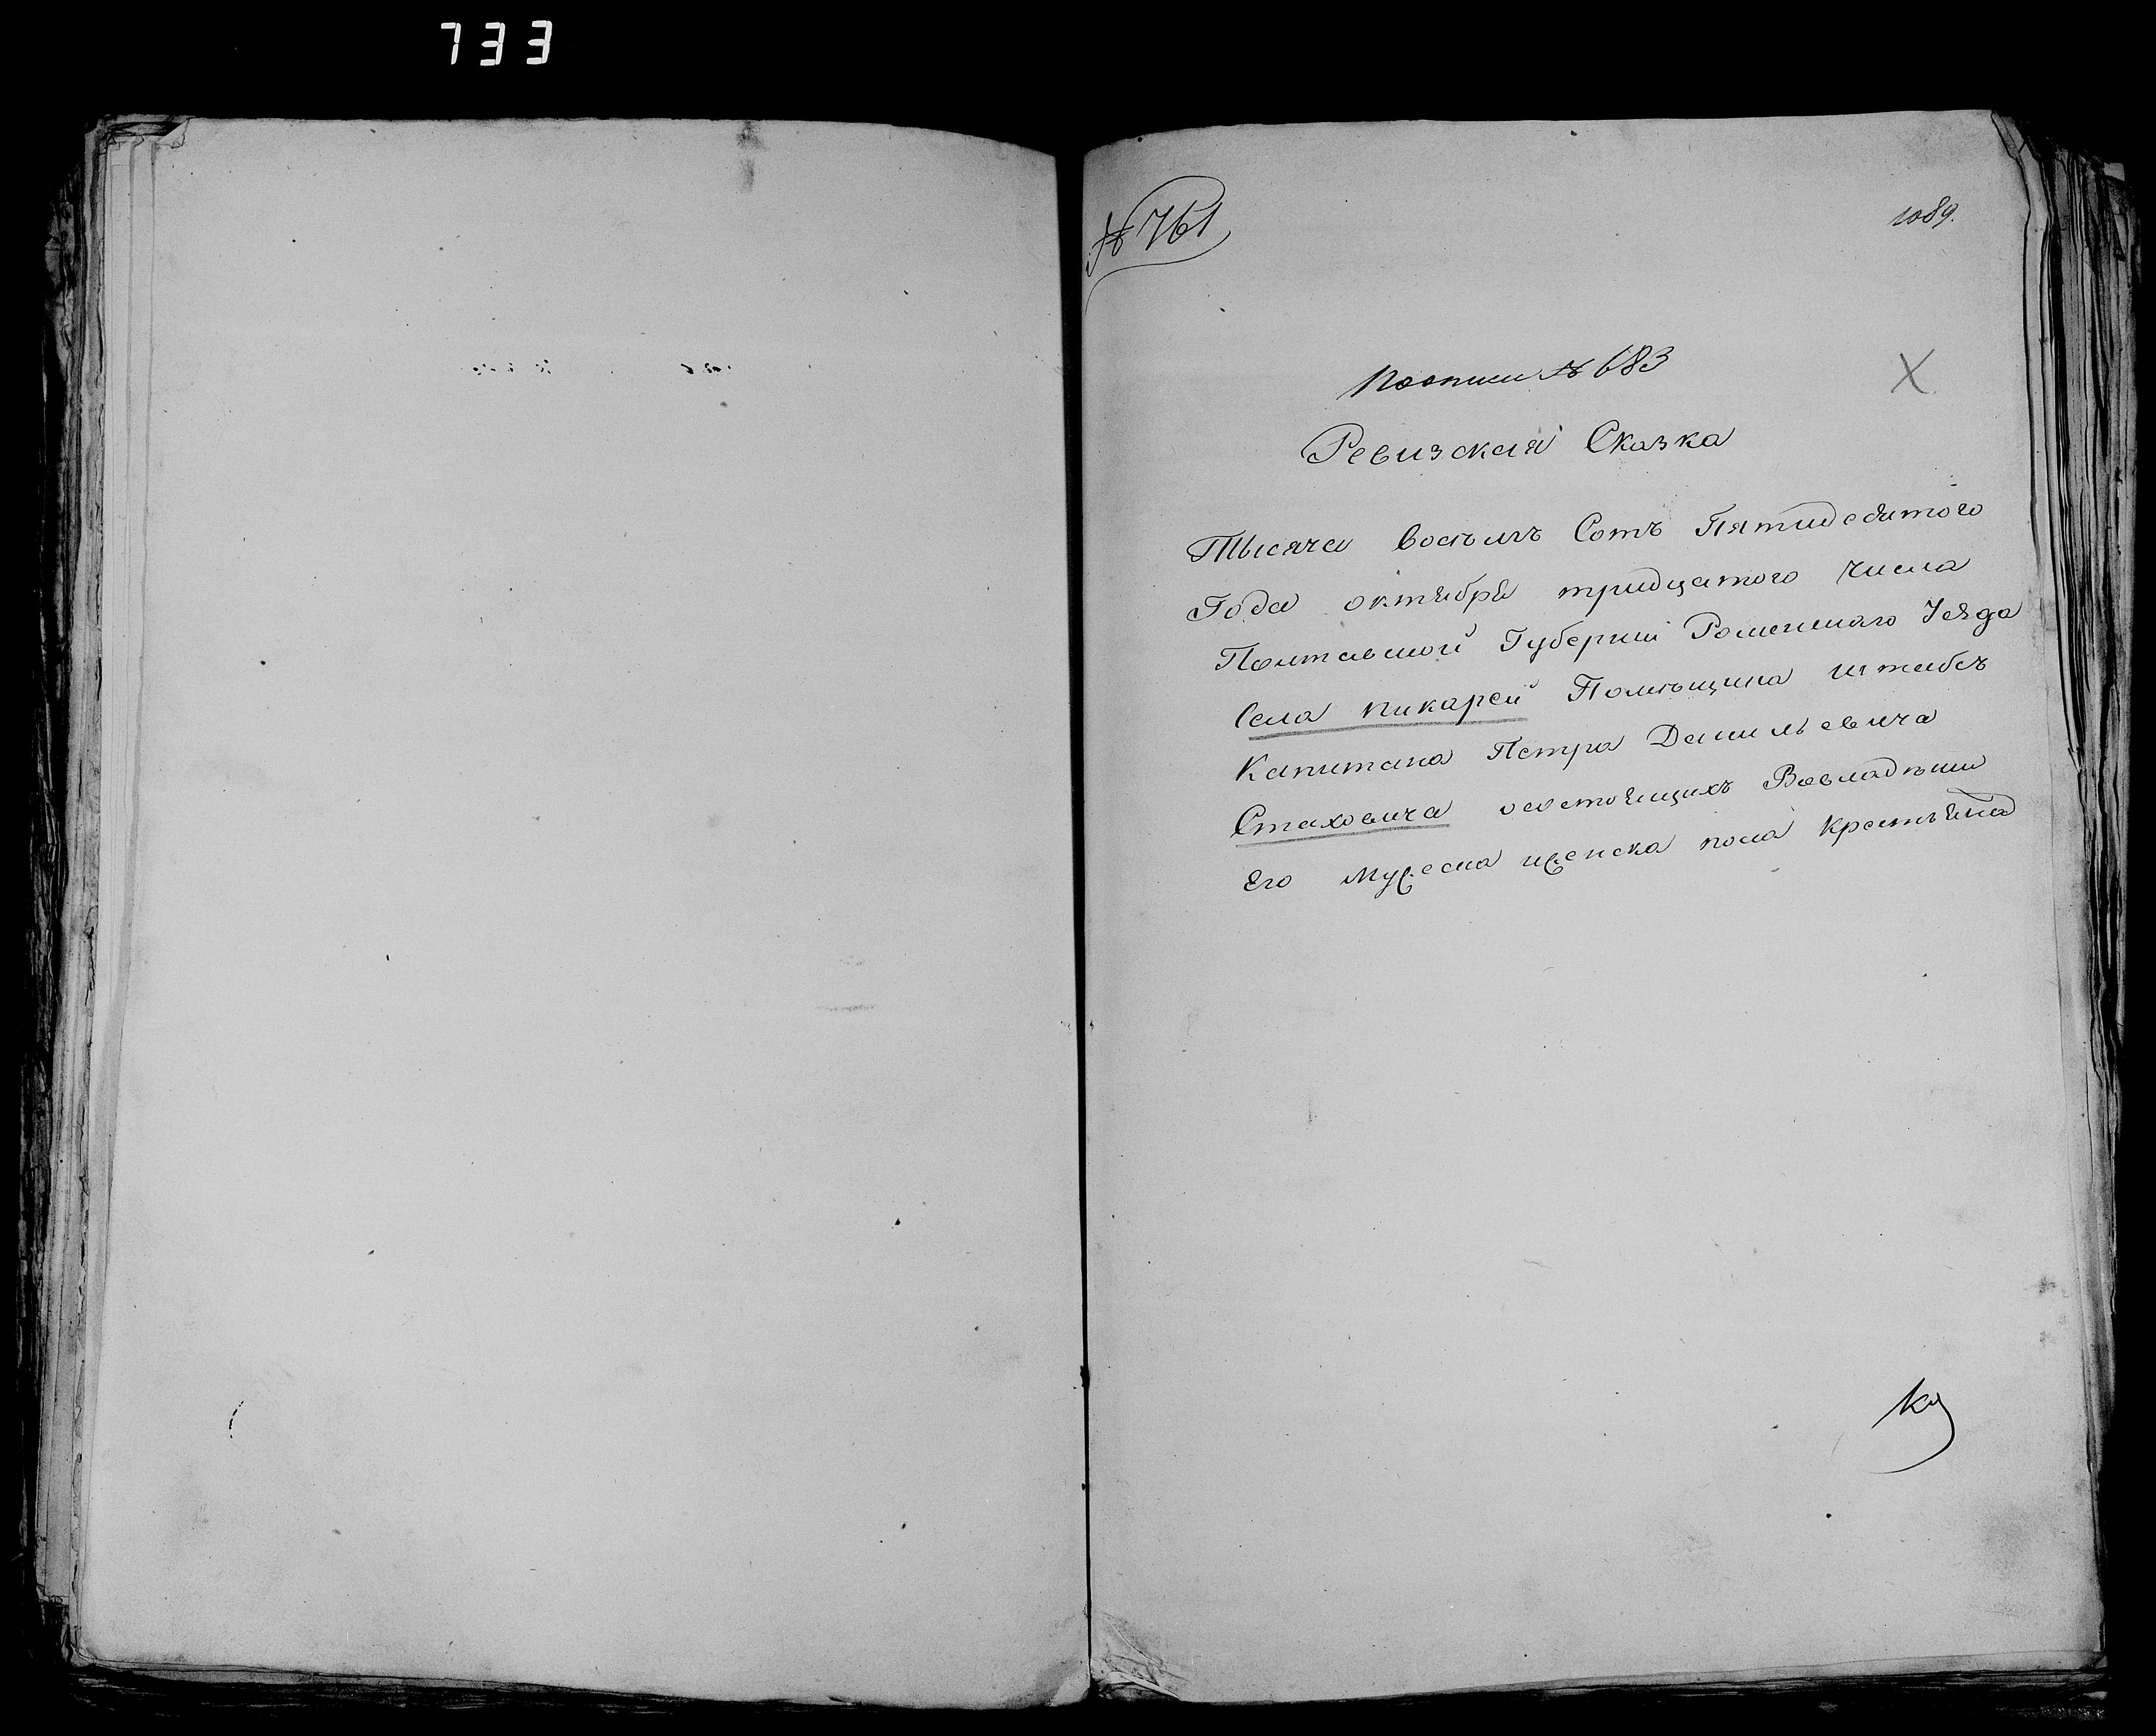 733
№ 761
1089.
По описи № 683
X
Ревизская Сказка
Тысяча восъмъ Сотъ Пятидесятого
Года октября тридцатого числа
Полтавской Губернии Роменского Уезда
Села пикарей Помъщика штабсъ
Капитана Петра Данильевича
Стаховича осостоящихъ Вовладънии
Его мужеска ижепска пола крестьянъ